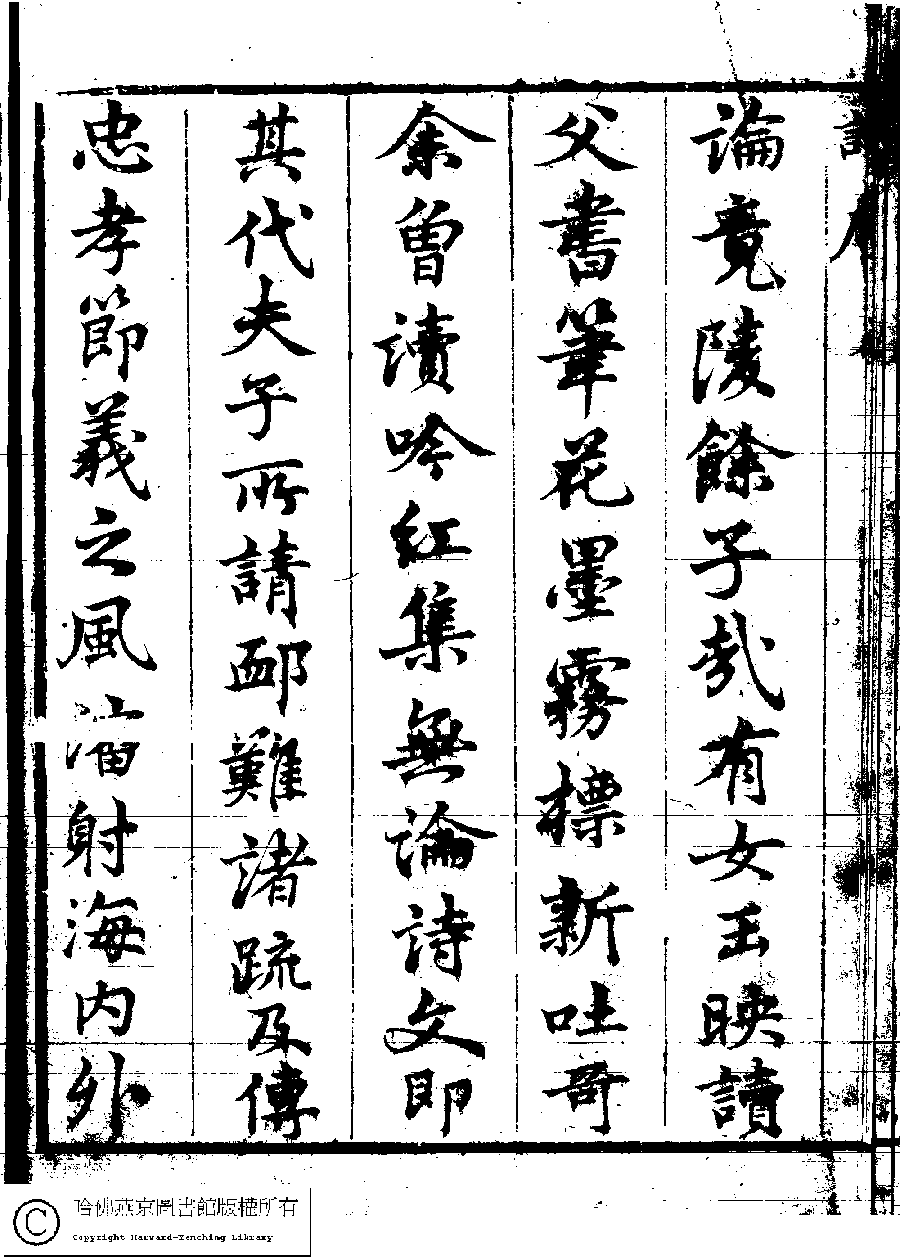 論竟陵餘子哉有女玉映讀
父書筆花墨霧標新吐奇
余曾讀吟紅集無論詩文即
其代夫子所請卹難諸疏及傳
忠孝節義之風溜射海內外
哈佛燕京圖書館版權所有
Copyright Harvard-Yenching Library